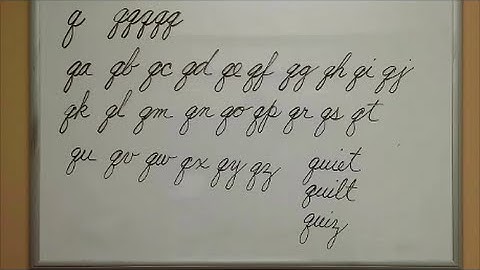 q qqqqq
qa qb qc qd qe qf qg qh qi qj
qk ql qm qn qo qp qr qs qt
qu qv qw qx qy qz quiet
quilt
quiz